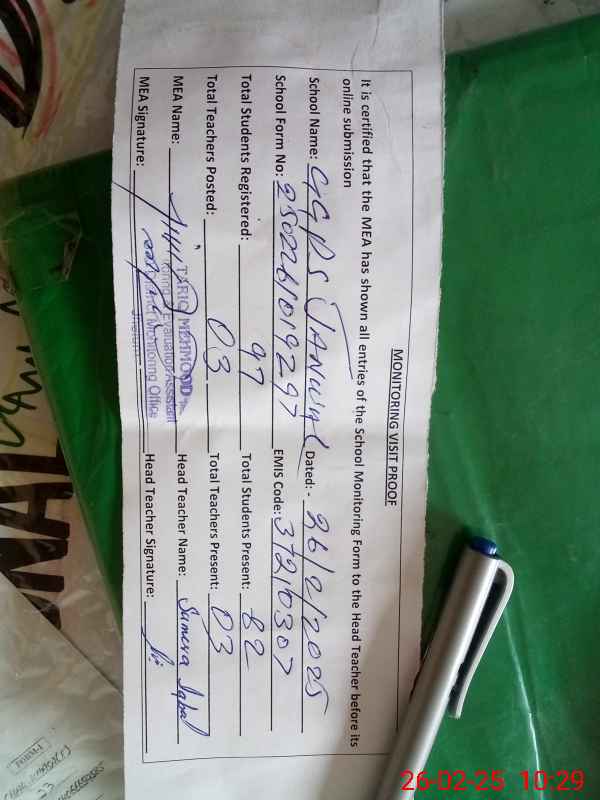 MONITORING VISIT PROOF
It is certified that the MEA has shown all entries of the School Monitoring Form to the Head Teacher before its
online submission
School Name: GGPS JANWAL Dated:- 26/2/2025
School Form No: 2502261019297 EMIS Code: 37210307
Total Students Registered: 97 Total Students Present: 82
Total Teachers Posted: 03 Total Teachers Present: 03
MEA Name: Head Teacher Name: Sumera Iqbal
MEA Signature: Head Teacher Signature:
TARIQ MEHMOOD
Monitoring & Evaluation Assistant
District Monitoring Office
Jhelum
26-02-25 10:29